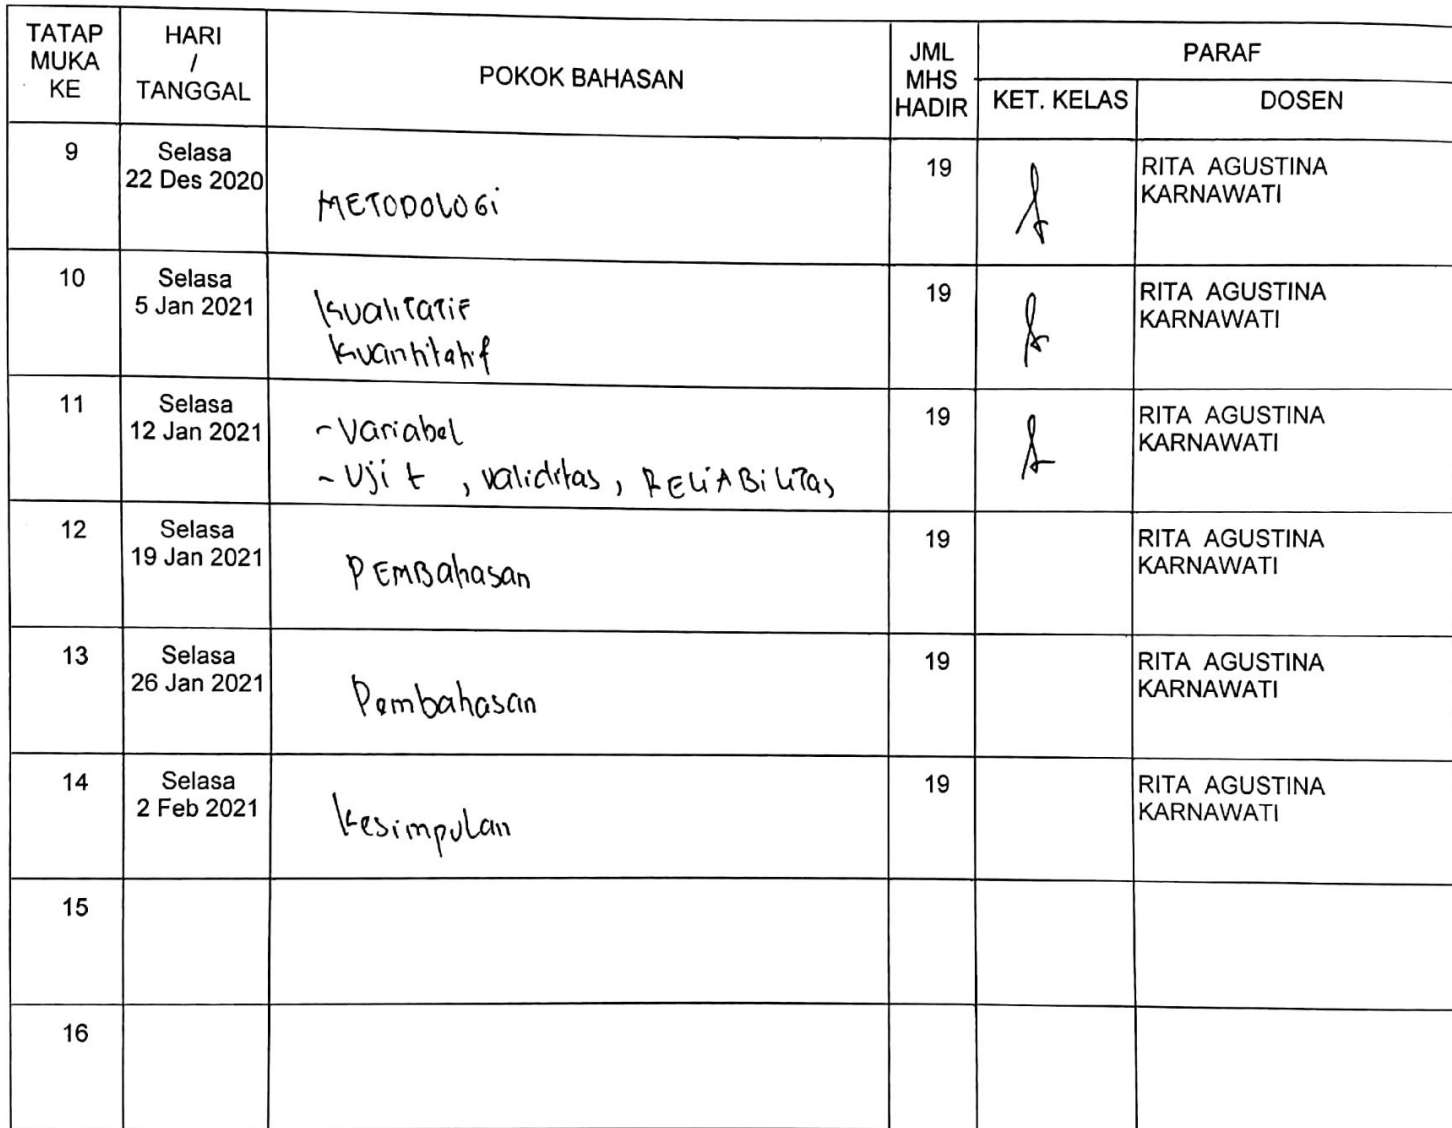 TATAP MUKA KE
HARI / TANGGAL
POKOK BAHASAN
JML MHS HADIR
PARAF
KET. KELAS
DOSEN
9
Selasa
22 Des 2020
METODOLOGi
19
RITA AGUSTINA
KARNAWATI
10
Selasa
5 Jan 2021
KUaliTaTiF
Kuantitatif
19
RITA AGUSTINA
KARNAWATI
11
Selasa
12 Jan 2021
- Variabel
- Uji t , validitas, RELiABiLiTas
19
RITA AGUSTINA
KARNAWATI
12
Selasa
19 Jan 2021
PEMBahasan
19
RITA AGUSTINA
KARNAWATI
13
Selasa
26 Jan 2021
Pembahasan
19
RITA AGUSTINA
KARNAWATI
14
Selasa
2 Feb 2021
Kesimpulan
19
RITA AGUSTINA
KARNAWATI
15
16